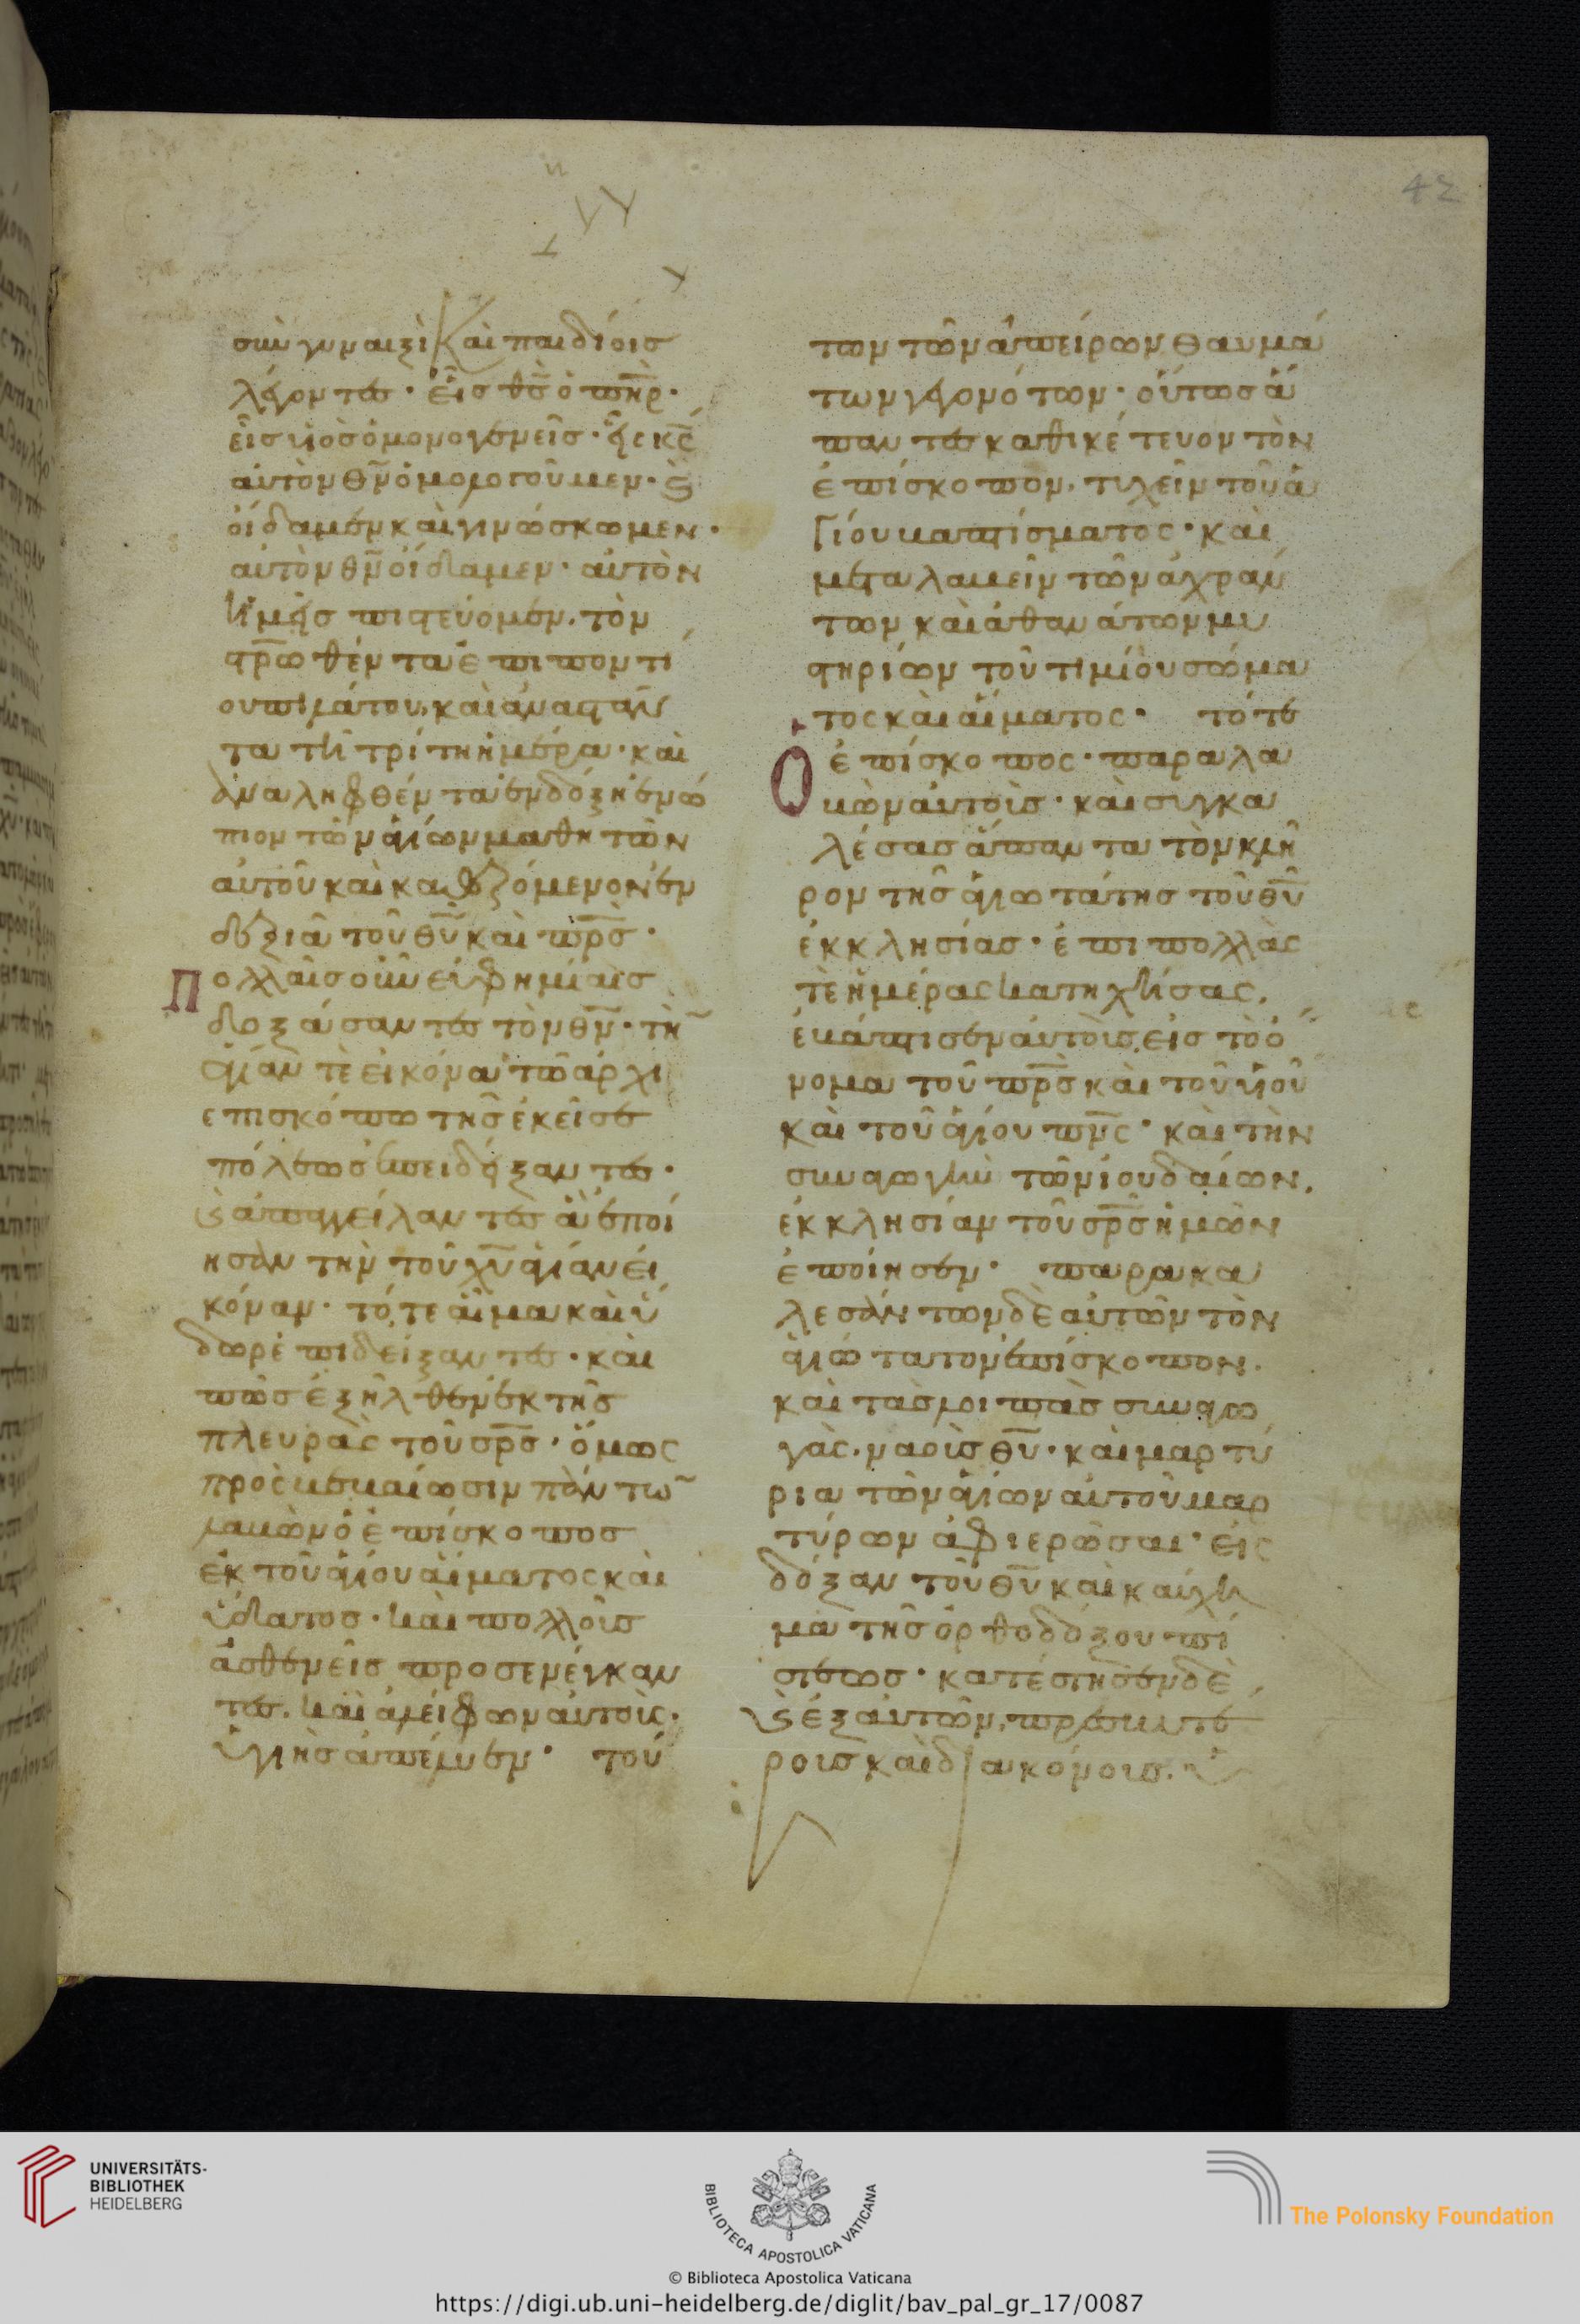 42
σὺν γυναιξὶ καὶ παιδίοις
λέγοντες· εἷς θς̅ ὁ πηρ̅·
εἷς υἱὸς ὁ μονογενεῖς· εἷς κς̅
αὐτὸν θν̅ ὁμολογοῦμεν· ϗ
οἴδαμεν καὶ γινώσκωμεν·
αὐτὸν θν̅ οἴδαμεν· αὐτὸν
ἡμεῖς πιστεύομεν, τὸν
στρ̅ωθέντα ἐπι ποντί
ου πιλάτου, καὶ ἀναστάν
τα τῆ τρίτη ἡμέρα· καὶ
ἀναληφθέντα ἐν δόξη ἐνώ
πιον τῶν ἁγίων μαθητῶν
αὐτοῦ καὶ καθεζόμενον ἐν
δεξιᾶ τοῦ θυ̅ καὶ πρς̅·
Πολλαῖς οὖν εὐφημίαις
δοξάσαντες τὸν θν̅· τὴ̅
ἁγίαν τὲ εἰκόνα τῶ ἀρχι
επισκόπω τῆς ἐκεῖσε
πόλεως ἐπειδείξαντες·
ϗ ἀπαγγείλαντες ἃ ἐποί
ησαν τὴν τοῦ χυ̅ ἁγίαν εἰ
κόναν· τό τε αἷμα καὶ ὕ
δωρ ἐπιδείξαντες· καὶ
πῶς ἐξῆλθεν ἐκ τῆς
πλευρᾶς τοῦ σρς̅· ὅμως
πρὸς βεβαίωσιν πάντω̅
λαβὼν ὁ ἐπίσκοπος
ἐκ τοῦ ἁγίου αἵματος καὶ
ὕδατος· καὶ πολλοῖς
ἀσθενεῖς προσενέγκαν
τες, καὶ ἀλείφων αὐτοὶς·
ὑγιῆς ἀπέλυεν· τού
των τῶν ἀπείρων θαυμά
των γεγονότων· οὕτως ἅ
παντες καθικέτευον τὸν
ἐπίσκοπον, τυχεῖν τοῦ ἁ
γίου βαπτίσματος· καὶ
μεταλαβεῖν τῶν ἀχράν
των καὶ ἀθανάτων μυ
στηρίων τοῦ τιμίου σώμα
τος καὶ αἵματος· τότε
Ὁ ἐπίσκοπος· παραλα
βὼν αὐτοὶς· καὶ συγκα
λέσας ἅπαντα τὸν κλῆ
ρον τῆς ἁγιωτάτης τοῦ θυ̅
ἐκκλησίας· ἐπι πολλὰς
τὲ ἡμέρας κατηχήσας,
ἐβάπτισεν αὐτοὶς, εἰς τὸ ὄ
νομα τοῦ πρς̅ καὶ τοῦ υἱοῦ
καὶ τοῦ ἁγίου πνς̅· καὶ τὴν
συναγωγὴν τῶν ἰουδαίων,
ἐκκλησίαν τοῦ σρς̅ ἡμῶν
ἐποίησεν· παρακα
λεσάντων δὲ αὐτῶν τὸν
ἁγιώτατον ἐπίσκοπον.
καὶ τὰς λοιπὰς συναγω
γὰς, ναοὶς θυ̅· καὶ μαρτύ
ρια τῶν ἁγίων αὐτοῦ μαρ
τύρων ἀφιερῶσαι· εἰς
δόξαν τοῦ θυ̅ καὶ καύχη
μα τῆς ὀρθοδόξου πί
στεως· κατέστησεν δὲ
ϗ ἐξ αὐτῶν, πρεσβυτέ
ροις καὶ διακόνοις.
UNIVERSITÄTS-
BIBLIOTHEK
HEIDELBERG
BIBLIOTECA APOSTOLICA VATICANA
The Polonsky Foundation
© Biblioteca Apostolica Vaticana
https://digi.ub.uni-heidelberg.de/diglit/bav_pal_gr_17/0087